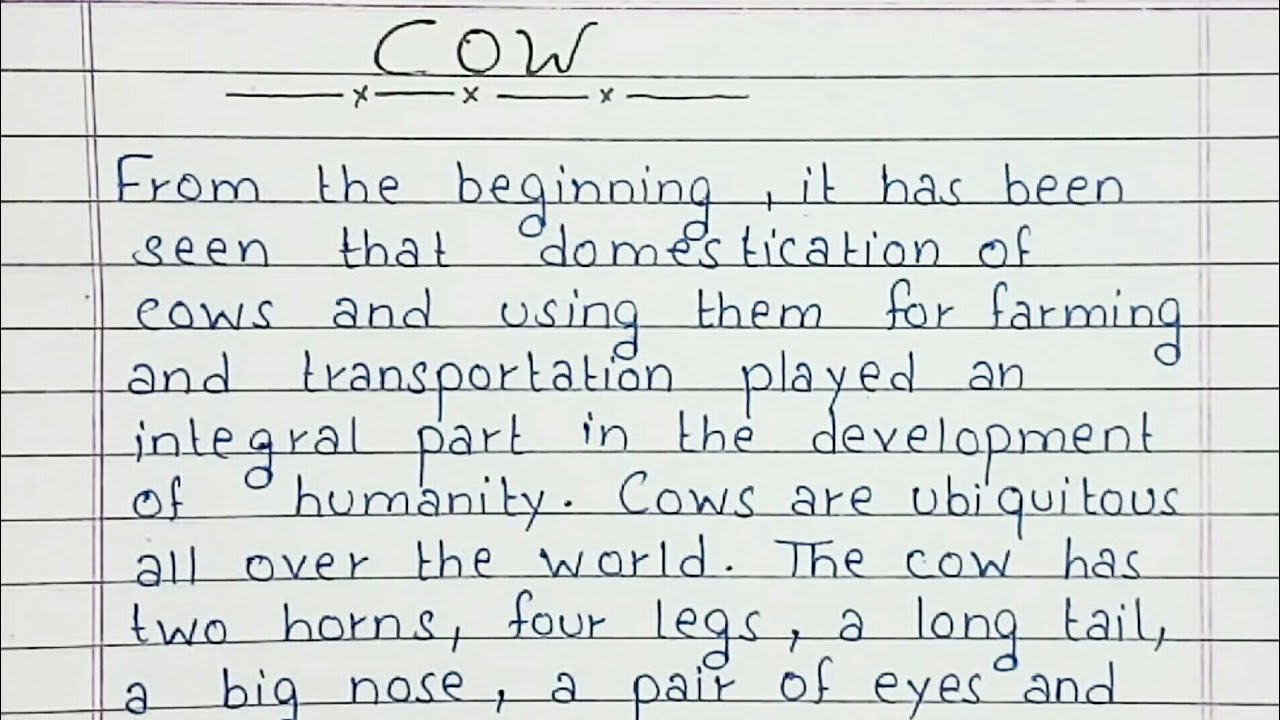 COW
From the beginning, it has been
seen that domestication of
cows and using them for farming
and transportation played an
integral part in the development
of humanity. Cows are ubiquitous
all over the world. The cow has
two horns, four legs, a long tail,
a big nose, a pair of eyes and